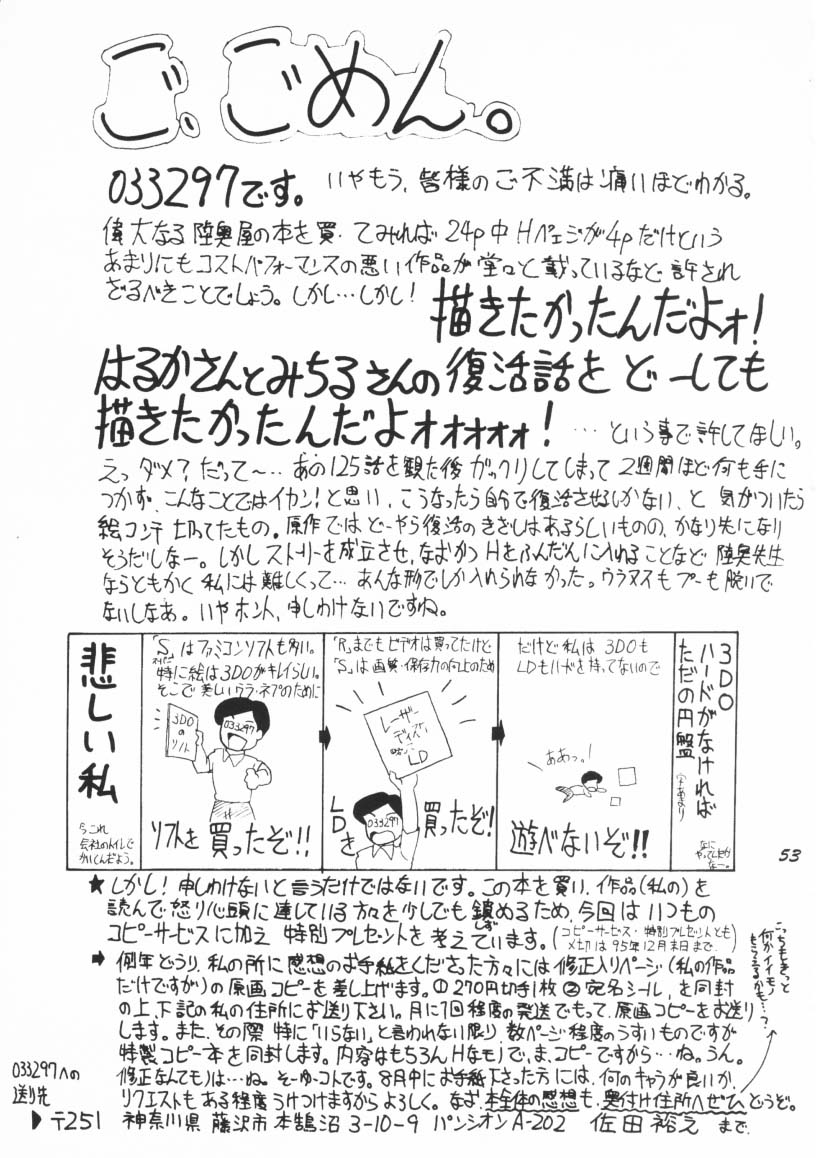 ご、ごめん。
033297です。 いやもう、皆様のご不満は痛いほどわかる。
偉大なる陸奥屋の本を買ってみれば24p中Hページが4pだけという
あまりにもコストパフォーマンスの悪い作品が堂々と載っているなど許され
ざるべきことでしょう。しかし…しかし! 描きたかったんだよォ!
はるかさんとみちるさんの復活話をどーしても
描きたかったんだよォォォォォ! …という事で許してほしい。
えっダメ?だって~…あの125話を観た後ガックリしてしまって2週間ほど何も手に
つかず、こんなことではイカン!と思い、こうなったら自分で復活させるしかない、と気がついたら
絵コンテ切ってたもの。原作ではどーやら復活のきざしはあるらしいものの、かなり先になり
そうだしなー。しかしストーリーを成立させ、なおかつHをふんだんに入れることなど陸奥先生
ならともかく私には難しくって…あんな形でしか入れられなかった。ウラヌスもプーも脱いで
ないしなあ。いやホント、申しわけないですね。
悲しい私
うこれ
会社のトイレで
かいてんだよう。
「S」はファミコンソフトも多い。
特に絵は3DOがキレイらしい。
そこで美しいウラ・ネプのために
3DOのソフト
033297
ソフトを買ったぞ!!
「R」までもビデオは買ってたけど
「S」は画質・保存力の向上のため
レーザーディスク
LD
033297
LDを買ったぞ!
だけど私は3DOも
LDもハードを持ってないので
ああっ。!
遊べないぞ!!
3DO
ハードがなければ
ただの円盤
なに
やってんだか
なー。
53
★しかし!申しわけないと言うだけではないです。この本を買い、作品(私の)を
読んで怒り心頭に達している方々を少しでも鎮めるため、今回はいつもの
しず
コピーサービスに加え特別プレゼントを考えています。(コピーサービス・特別プレゼントとも
〆切は95年12月末日まで。)
➡例年どうり、私の所に感想のお手紙をくださった方々には修正入りページ(私の作品
だけですが)の原画コピーを差し上げます。①270円切手1枚②宛名シール、を同封
の上、下記の私の住所にお送り下さい。月に1回程度の発送でもって、原画コピーをお送り
します。また、その際特に「いらない」と言われない限り、数ページ程度のうすいものですが
特製コピー本を同封します。内容はもちろんHなモノで、ま、コピーですから…ね。うん。
修正なんてものは…ね。そーゆーコトです。8月中にお手紙下さった方には、何のキャラが良いか、
リクエストもある程度うけつけますからよろしく。なお、本全体の感想も、奥付け住所へぜひどうぞ。
こっちもきっと
何かイイモノ
もらえるかも…?
033297への
送り先
▶〒251 神奈川県 藤沢市 本鵠沼 3-10-9 パンシオンA-202 佐田裕之 まで